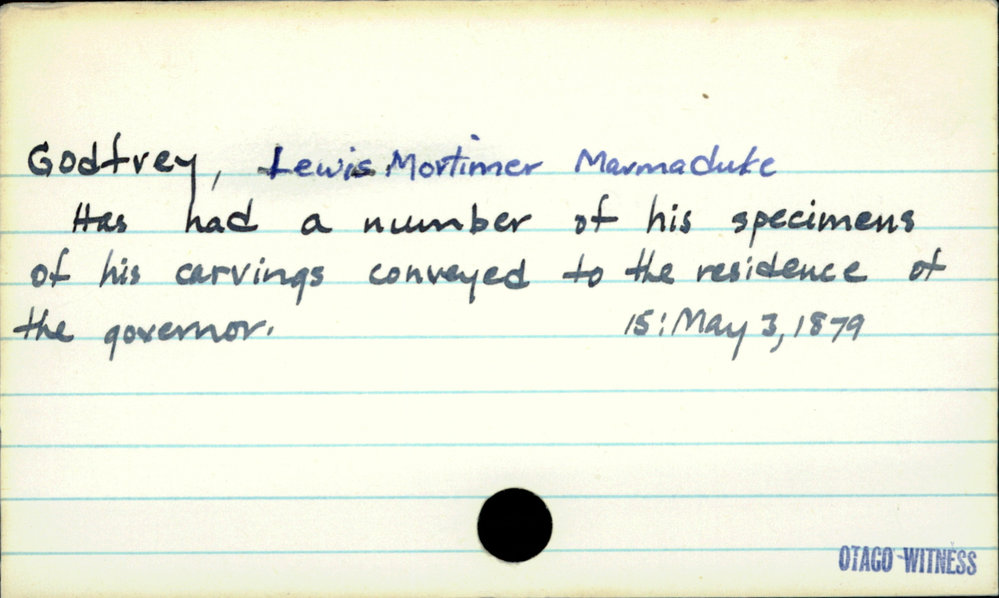 Godfrey, Lewis Mortimer Marmaduke
Has had a number of his specimens
of his carvings conveyed to the residence of
the governor. 15: May 3, 1879
OTAGO WITNESS